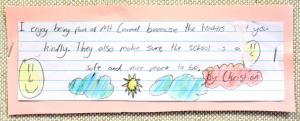 I enjoy being part of Mt Carmel because the teachers t you
kindly. They also make sure the school is a
safe and nice place to be.
By Christian